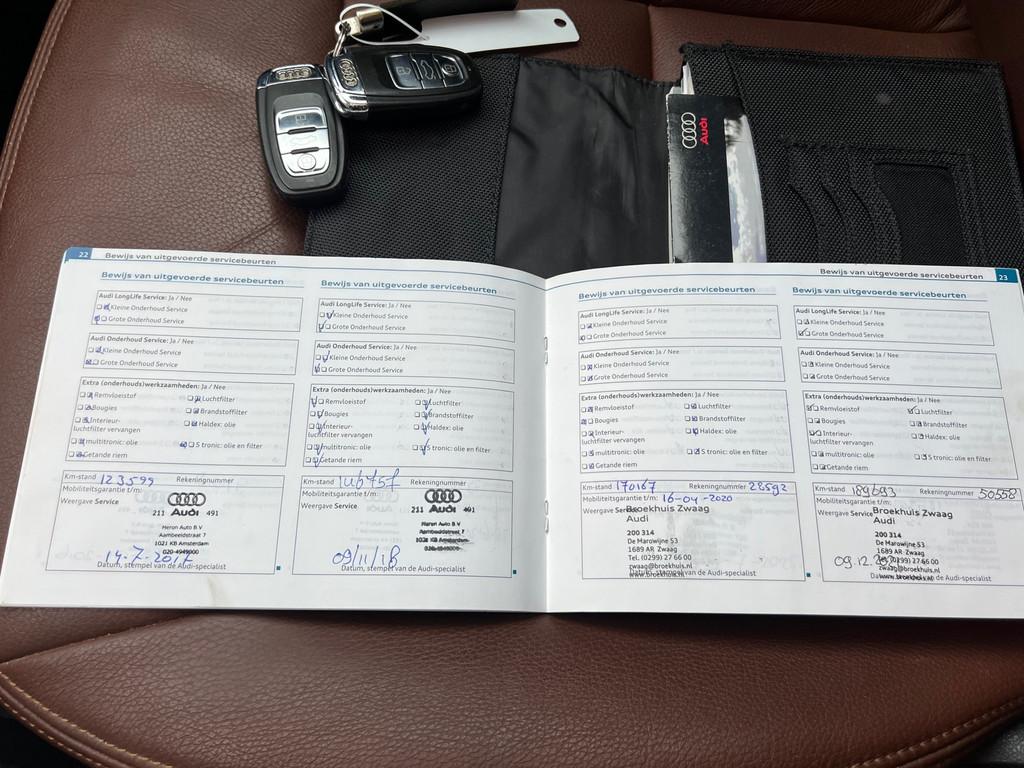 Audi
22 Bewijs van uitgevoerde servicebeurten
Bewijs van uitgevoerde servicebeurten
Audi LongLife Service: Ja / Nee
Kleine Onderhoud Service
Grote Onderhoud Service
Audi Onderhoud Service: Ja / Nee
Kleine Onderhoud Service
Grote Onderhoud Service
Extra (onderhouds)werkzaamheden: Ja / Nee
Remvloeistof Luchtfilter
Bougies Brandstoffilter
Interieur- Haldex: olie
luchtfilter vervangen
multitronic: olie S tronic: olie en filter
Getande riem
Km-stand 123599 Rekeningnummer
Mobiliteitsgarantie t/m:
Weergave Service
211 Audi 491
Heron Auto B V
Aambeeldstraat 7
1021 KB Amsterdam
020-4949000
14-7-2017
Datum, stempel van de Audi-specialist
Bewijs van uitgevoerde servicebeurten
Audi LongLife Service: Ja / Nee
Kleine Onderhoud Service
Grote Onderhoud Service
Audi Onderhoud Service: Ja / Nee
Kleine Onderhoud Service
Grote Onderhoud Service
Extra (onderhouds)werkzaamheden: Ja / Nee
Remvloeistof Luchtfilter
Bougies Brandstoffilter
Interieur- Haldex: olie
luchtfilter vervangen
multitronic: olie S tronic: olie en filter
Getande riem
Km-stand Rekeningnummer
Mobiliteitsgarantie t/m:
Weergave Service
211 Audi 491
Heron Auto B V
Aambeeldstraat 7
1021 KB Amsterdam
09/11/18
Datum, stempel van de Audi-specialist
Bewijs van uitgevoerde servicebeurten 23
Bewijs van uitgevoerde servicebeurten
Audi LongLife Service: Ja / Nee
Kleine Onderhoud Service
Grote Onderhoud Service
Audi Onderhoud Service: Ja / Nee
Kleine Onderhoud Service
Grote Onderhoud Service
Extra (onderhouds)werkzaamheden: Ja / Nee
Remvloeistof Luchtfilter
Bougies Brandstoffilter
Interieur- Haldex: olie
luchtfilter vervangen
multitronic: olie S tronic: olie en filter
Getande riem
Km-stand 170167 Rekeningnummer 28592
Mobiliteitsgarantie t/m: 16-04-2020
Weergave Service
Broekhuis Zwaag
Audi
200 314
De Marowijne 53
1689 AR Zwaag
Tel. (0299) 27 66 00
zwaag@broekhuis.nl
www.broekhuis.nl
Datum, stempel van de Audi-specialist
Bewijs van uitgevoerde servicebeurten
Audi LongLife Service: Ja / Nee
Kleine Onderhoud Service
Grote Onderhoud Service
Audi Onderhoud Service: Ja / Nee
Kleine Onderhoud Service
Grote Onderhoud Service
Extra (onderhouds)werkzaamheden: Ja / Nee
Remvloeistof Luchtfilter
Bougies Brandstoffilter
Interieur- Haldex: olie
luchtfilter vervangen
multitronic: olie S tronic: olie en filter
Getande riem
Km-stand 189693 Rekeningnummer 50558
Mobiliteitsgarantie t/m:
Weergave Service
Broekhuis Zwaag
Audi
200 314
De Marowijne 53
1689 AR Zwaag
Tel. (0299) 27 66 00
zwaag@broekhuis.nl
www.broekhuis.nl
Datum, stempel van de Audi-specialist